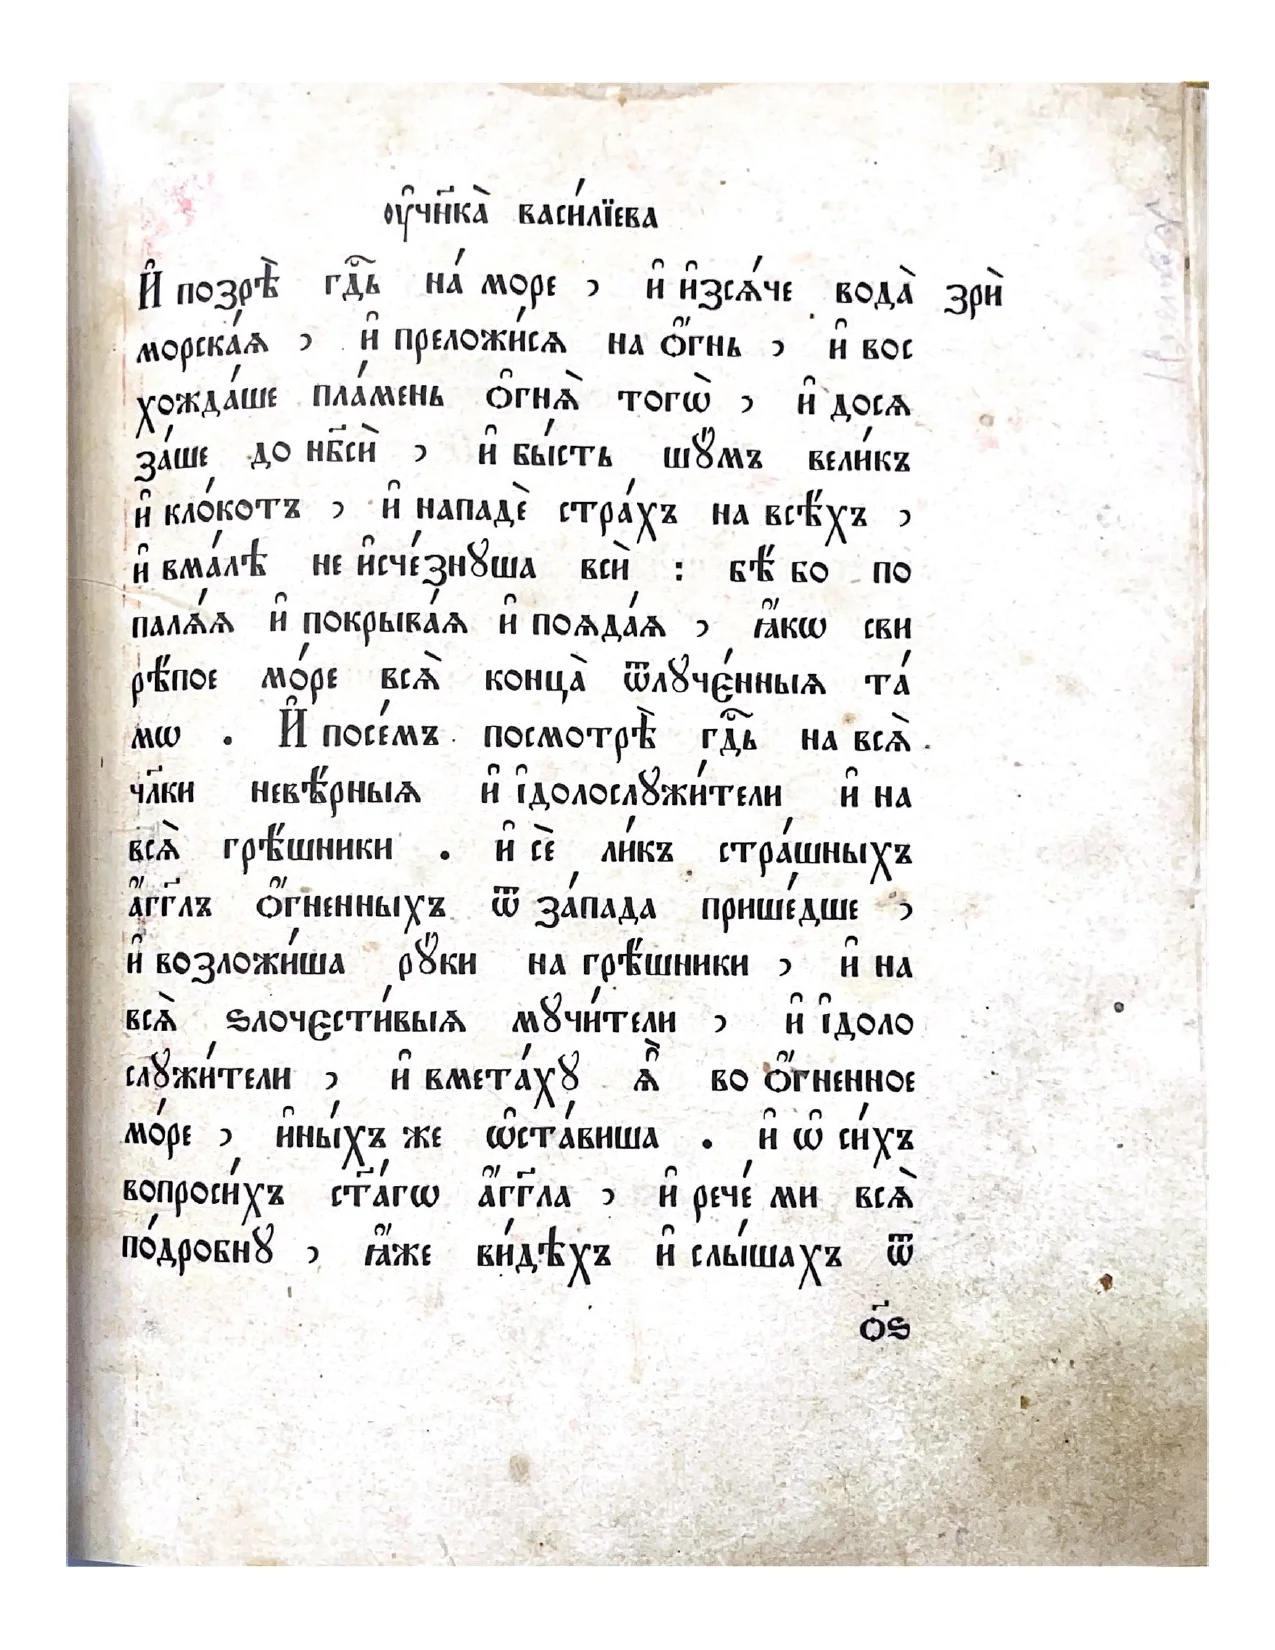 оу҆чн҃ка̀ васи́лїева
И҆ позрѣ̀ гдⷭ҇ь на́ море , и҆ и҆зсѧ́че вода̀ зрѝ
морска́ѧ , и҆ преложи́сѧ на ѻ҆́гнь , и҆ вос
хожда́ше пла́мень ѻ҆гнѧ̀ тогѡ̀ , и҆ досѧ
за́ше до нб҃сѝ , и҆ бы́сть шꙋ́мъ вели́къ
и҆ кло́котъ , и҆ нападѐ стра́хъ на всѣ́хъ ,
и҆ вма́лѣ не и҆сче́знꙋша всѝ : бѣ́ бо по
палѧ́ѧ и҆ покрыва́ѧ и҆ поѧда́ѧ , ꙗ҆́кѡ сви
рѣ́пое мо́ре всѧ̀ конца̀ ѿлꙋче́нныѧ та́
мѡ . И҆ посе́мъ посмотрѣ̀ гдⷭ҇ь на всѧ̀
чл҃ки невѣ́рныѧ и҆ і҆долослꙋжи́тели и҆ на
всѧ̀ грѣ́шники . и҆ сѐ ли́къ стра́шныхъ
а҆́гг҃лъ ѻ҆́гненныхъ ѿ за́пада прише́дше ,
и҆ возложи́ша рꙋ́ки на грѣ́шники , и҆ на
всѧ̀ ѕлочести́выѧ мꙋчи́тели , и҆ і҆доло
слꙋжи́тели , и҆ вмета́хꙋ ѧ҆̀ во ѻ҆́гненное
мо́ре , и҆ны́хъ же ѡ҆ста́виша . и҆ ѡ҆ си́хъ
вопроси́хъ ст҃а́гѡ а҆́гг҃ла , и҆ рече́ ми всѧ̀
по́дробнꙋ , ꙗ҆́же ви́дѣхъ и҆ слы́шахъ ѿ
ѻ҃ѕ